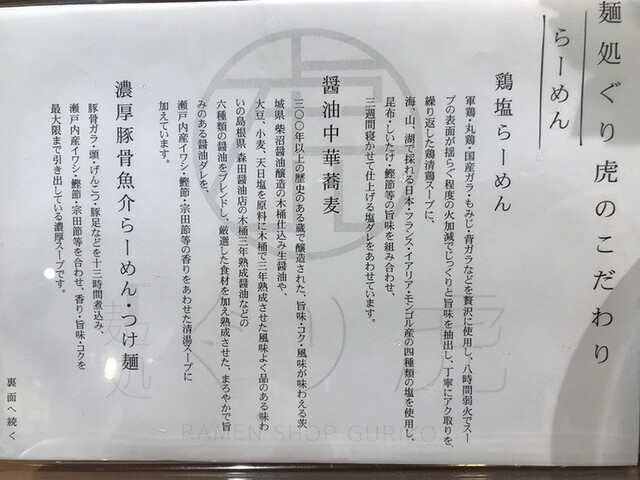 麺処ぐり虎のこだわり
らーめん
鶏塩らーめん
軍鶏・丸鶏・国産ガラ・もみじ・背ガラなどを贅沢に使用し、八時間弱火でスー
プの表面が揺らぐ程度の火加減でじっくりと旨味を抽出し、丁寧にアク取りを
繰り返した鶏清鶏スープに、
海、山、湖で採れる日本・フランス・イアリア・モンゴル産の四種類の塩を使用し、
昆布・しいたけ・鰹節等の旨味を組み合わせ、
三週間寝かせて仕上げる塩ダレをあわせています。
醤油中華蕎麦
三〇〇年以上の歴史のある蔵で醸造された、旨味・コク・風味が味わえる茨
城県 柴沼醤油醸造の木桶仕込み生醤油や、
大豆、小麦、天日塩を原料に木桶で三年熟成させた風味よく品のある味わ
いの島根県 森田醤油店の木桶三年熟成醤油などの
六種類の醤油をブレンドし、厳選した食材を加え熟成させた、まろやかで旨
みのある醤油ダレを、
瀬戸内産イワシ・鰹節・宗田節等の香りをあわせた清湯スープに
加えています。
濃厚豚骨魚介らーめん・つけ麺
豚骨ガラ・頭・げんこつ・豚足などを十三時間煮込み、
瀬戸内産イワシ・鰹節・宗田節等を合わせ、香り・旨味・コクを
最大限まで引き出している濃厚スープです。
裏面へ続く
麺処
ぐり虎
RAMEN SHOP GURIKO